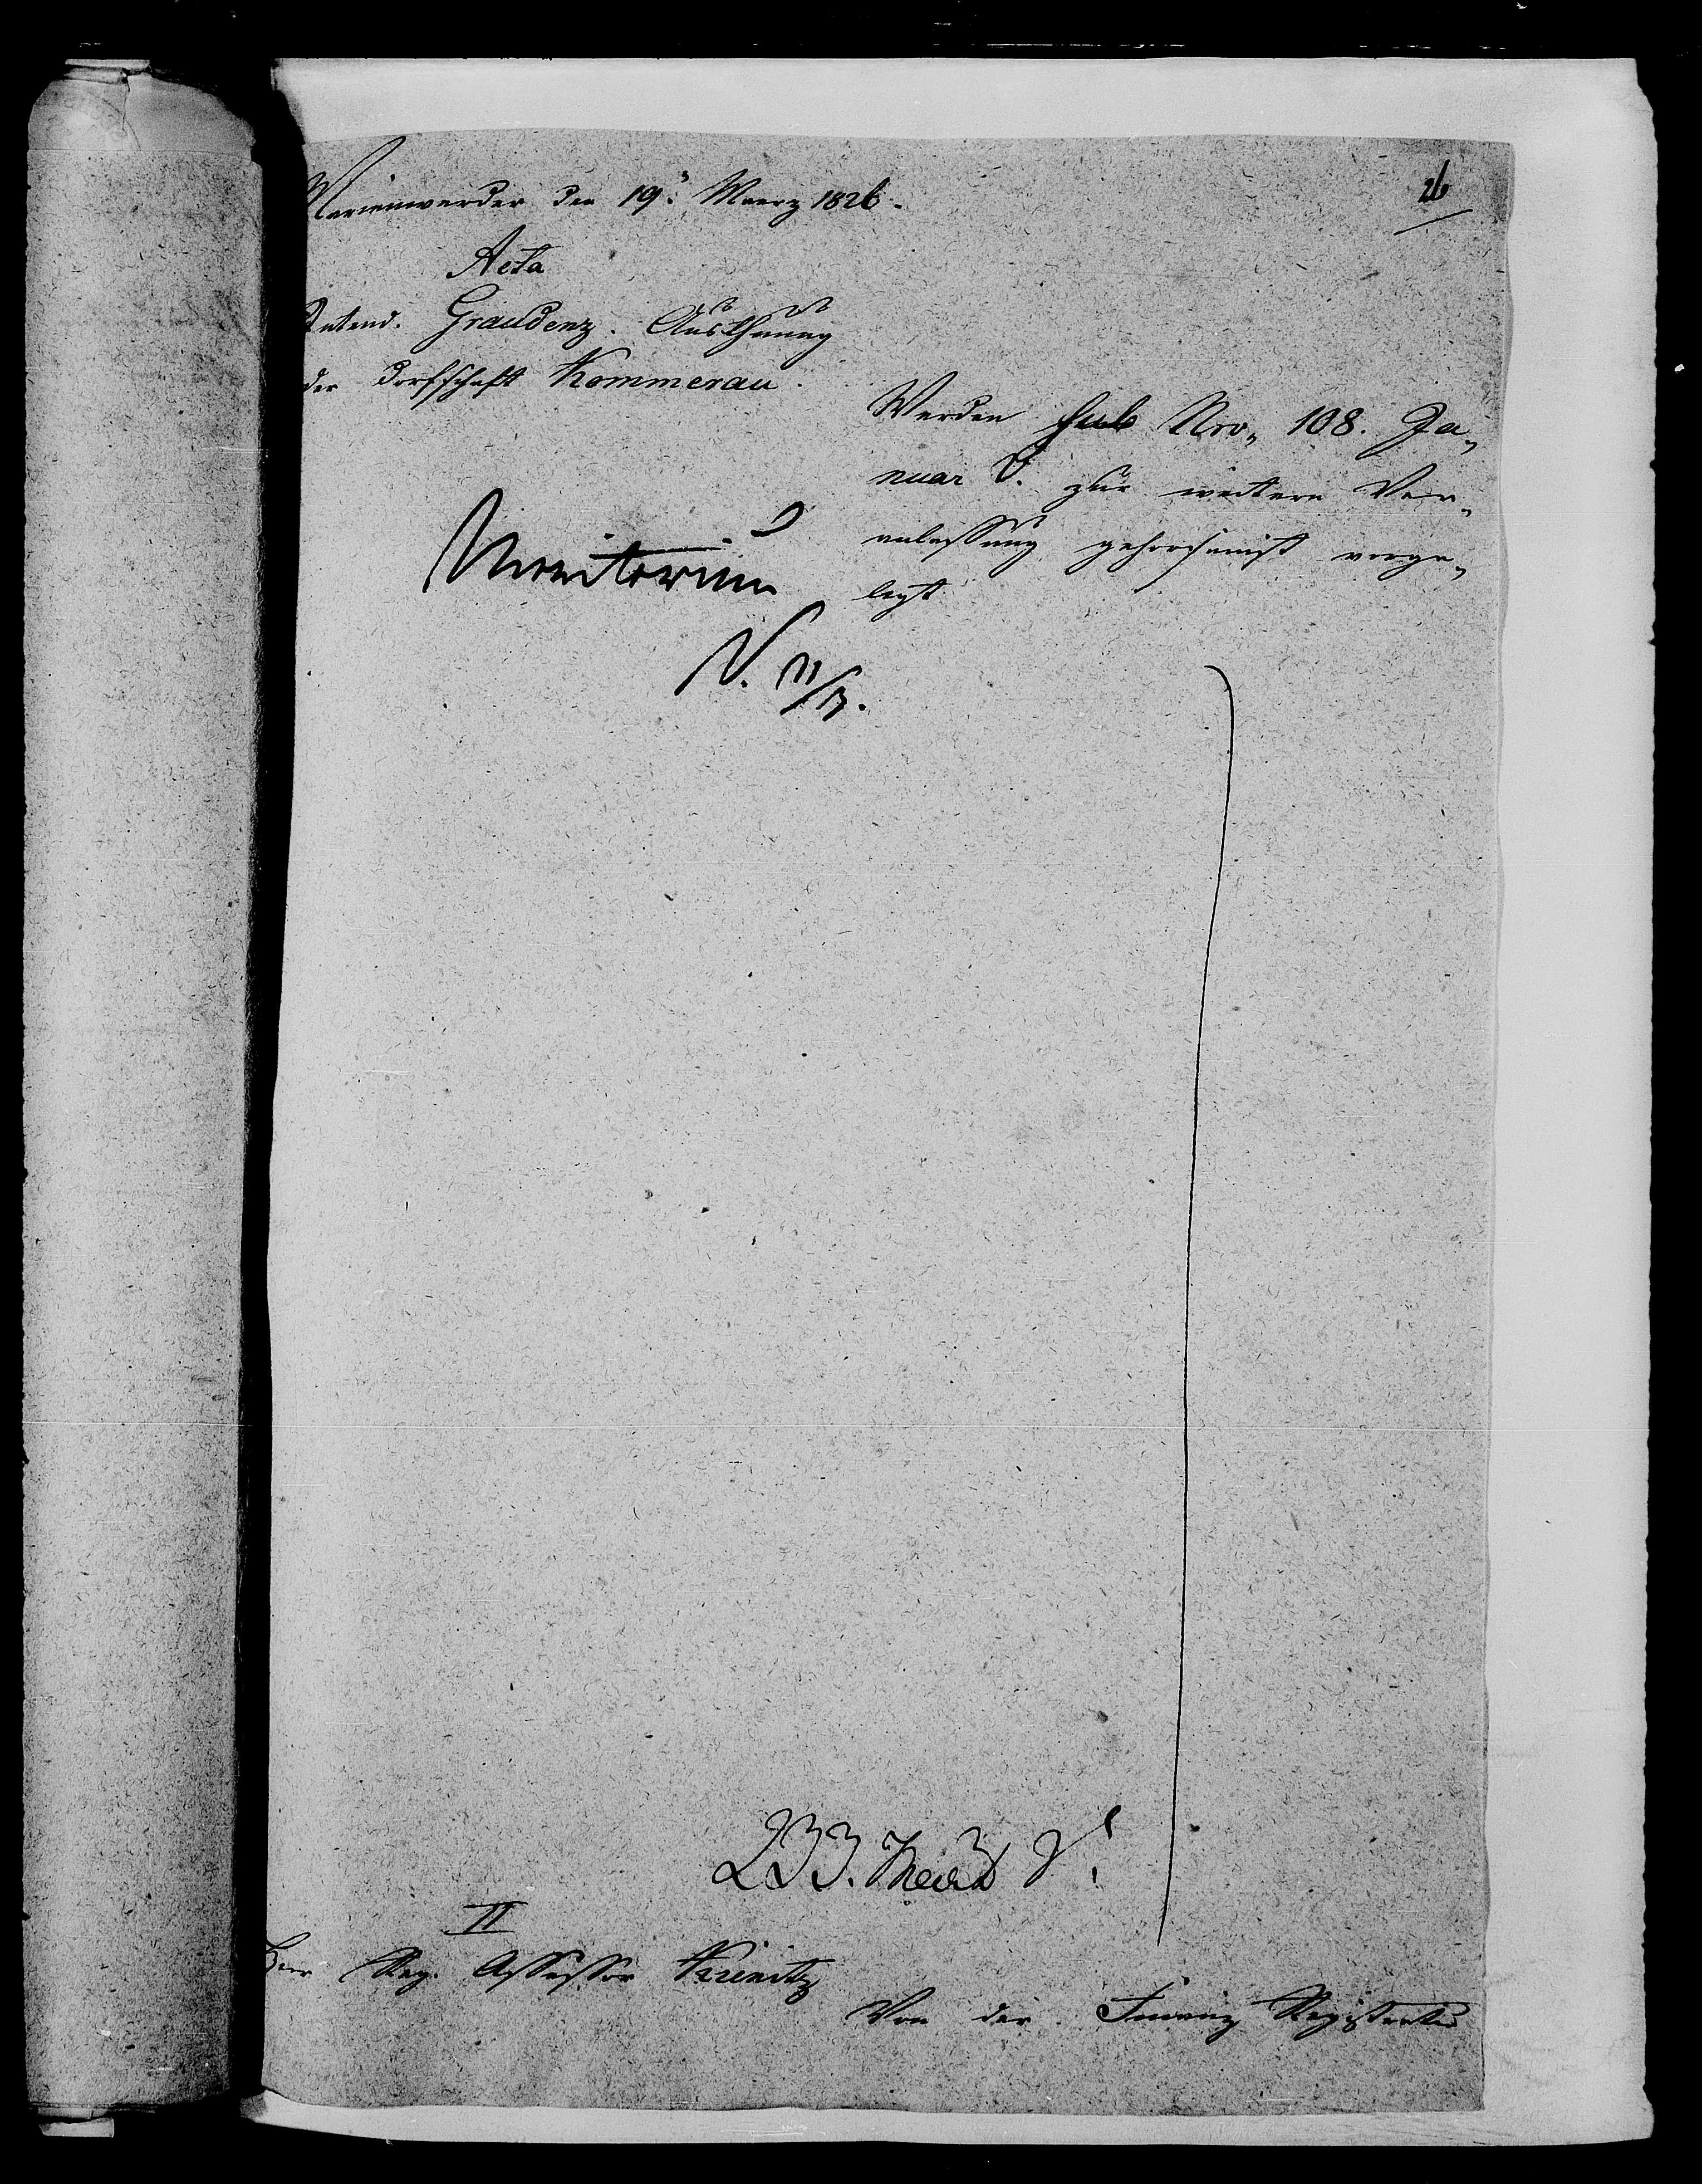 26
Marienwerder den 19.n Maerz 1826.
Acta
Intend. Graudenz. Austhuung
der Dorfschaft Kommerau.
Werden sub Nro. 108. Ja-
nuar d. zur weitern Ver-
anlassung gehorsamst vorge-
legt
Monitorium
N. 21/3.
233. Maerz
II
Herr Reg. Assessor Kienitz
Von der Finanz Registratur